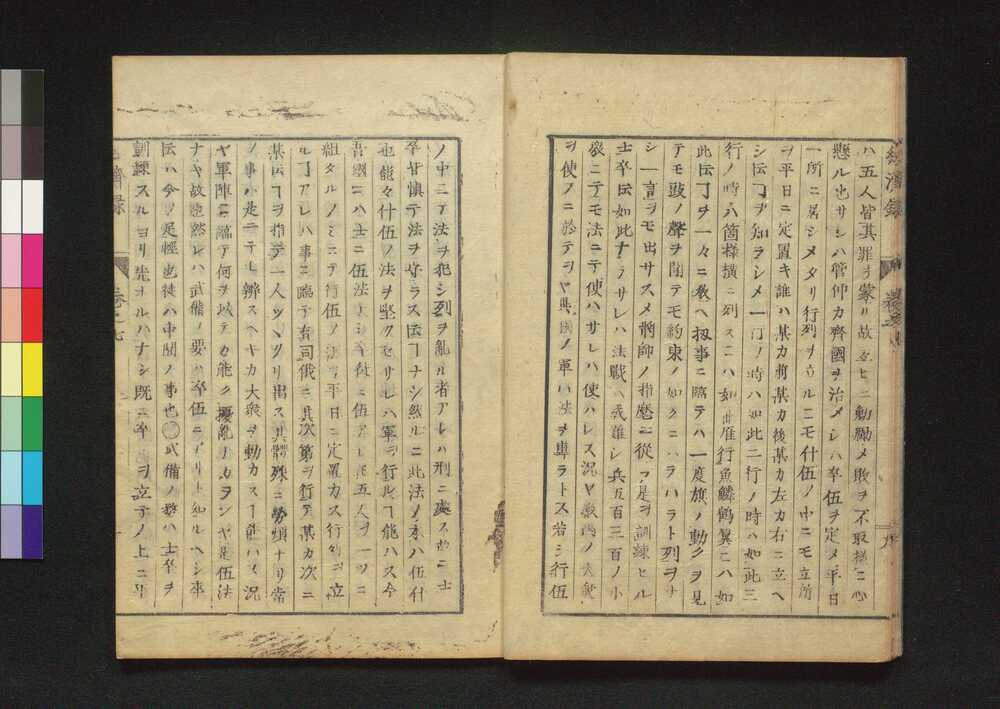 經濟録
ハ五人皆其罪ヲ蒙ル故互ヒニ勧勵メ敗ヲ不取様ニ心
懸ル也サレハ管仲カ齊國ヲ治メシハ卒伍ヲ定メ平日
一所ニ居シメタリ行列ヲ立ルニモ什伍ノ中ニモ立所
ヲ平日ニ定置キ誰ハ某カ前某カ後某カ左カ右ニ立ヘ
シト云ヿヲ知ラシメ一行ノ時ハ如此二行ノ時ハ如此三
行ノ時ハ箇様横ニ列スニハ如此雁行魚鱗鶴翼ニハ如
此ト云ヿヲ一々ニ教ヘ扨事ニ臨テハ一度旗ノ動クヲ見
テモ鼓ノ聲ヲ聞テモ約束ノ如クニハラハラト列ヲナ
シ一言ヲモ出サス將帥ノ指麾ニ從フ是ヲ訓練セル
士卒ト云如此ナラサレハ法戰ハ成難シ兵五百三百ノ小
衆ニテモ法ニテ使ハサレハ使ハレス況ヤ数萬ノ大衆
ヲ使フニ於テヲヤ異國ノ軍ハ法ヲ專ラトス若シ行伍
ノ中ニテ法ヲ犯シ列ヲ亂ル者アレハ刑ニ處ス故ニ士
卒皆慎テ法ヲ守ラスト云ヿナシ然ルニ此法ノ本ハ伍什
也能々什伍ノ法ヲ堅クセサレハ軍ヲ行ルヿ能ハス今
吾國ニハ士ニ伍法ナシ卒徒ニ伍アレ𪜈五人ヲ一ツニ
組タルノミニテ行伍ノ法ヲ平日ニ定置カス行列ヲ立
ルヿアレハ事ニ臨テ有司俄ニ其次第ヲ行テ某カ次ニ
某ト云ヿヲ指テ一人ツヽクリ出ス其體殊ニ勞煩ナリ常
ノ事小是ニテモ辨スヘキカ大衆ヲ動カスヿ能ハス況
ヤ軍陣ニ臨テ何ヲ以テカ能ク擾亂ナカランヤ是伍法
ナキ故也然レハ武備ノ要ハ卒伍ニアリト知ルヘシ卒
ト云ハ今ノ足輕也徒ハ中間ノ事也〇武備ノ教ハ士卒ヲ
訓練スルヨリ先ナルハナシ既ニ卒伍ヲ立テノ上ニ早
經濟録
卷之七